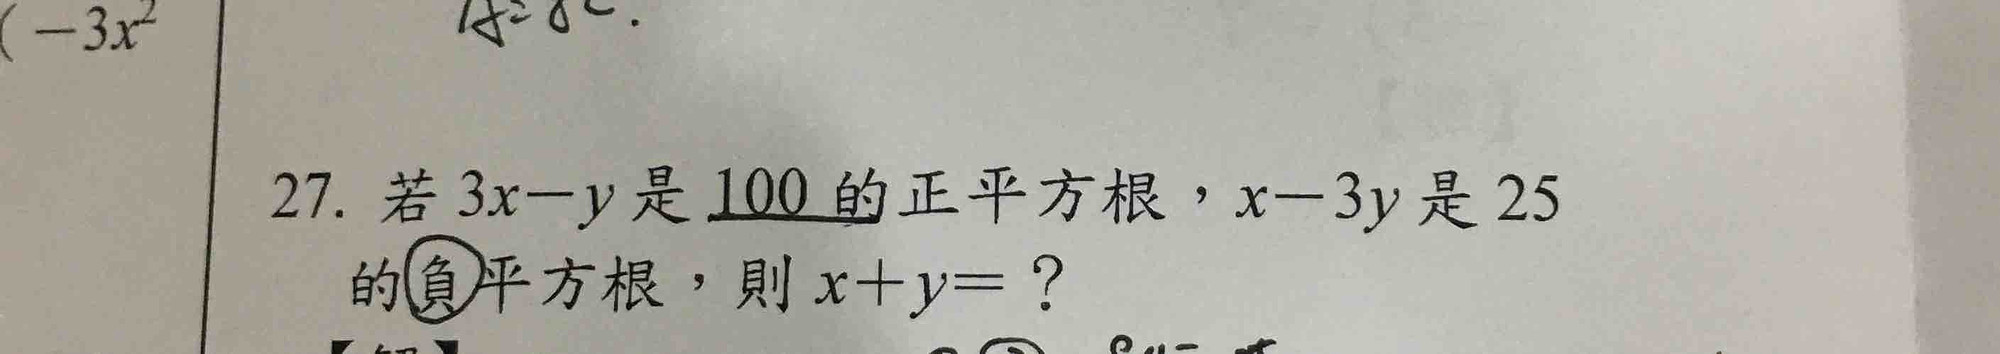 ( −3x²
27. 若 3x−y 是 100 的正平方根，x−3y 是 25
的負平方根，則 x+y=？